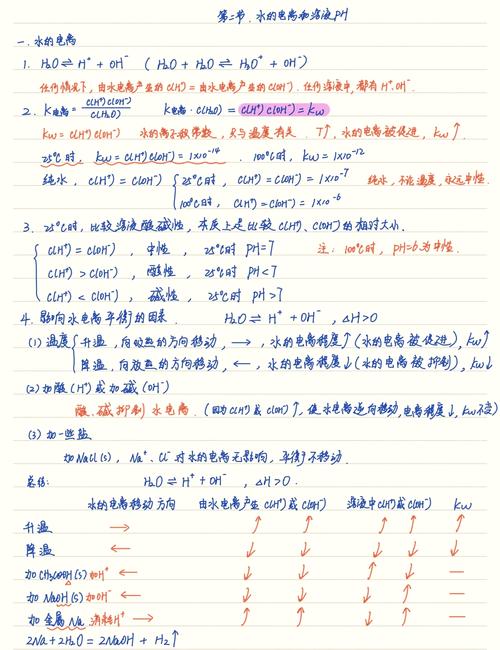 第二节. 水的电离和溶液PH
一. 水的电离
1. H₂O ⇌ H⁺ + OH⁻ ( H₂O + H₂O ⇌ H₃O⁺ + OH⁻ )
任何情况下, 由水电离产生的C(H⁺) = 由水电离产生的C(OH⁻). 任何溶液中, 都有H⁺.OH⁻.
2. K电离 = C(H⁺)C(OH⁻)/C(H₂O) K电离 · C(H₂O) = C(H⁺)C(OH⁻) = Kw
Kw = C(H⁺)C(OH⁻) 水的离子积常数, 只与温度有关. T↑, 水的电离被促进, Kw↑.
25℃时, Kw = C(H⁺)C(OH⁻) = 1×10⁻¹⁴. 100℃时, Kw = 1×10⁻¹²
纯水, C(H⁺) = C(OH⁻) { 25℃时, C(H⁺) = C(OH⁻) = 1×10⁻⁷ 纯水, 不论温度, 永远中性.
100℃时, C(H⁺) = C(OH⁻) = 1×10⁻⁶
3. 25℃时, 比较溶液酸碱性, 本质上是比较C(H⁺)、C(OH⁻)的相对大小.
C(H⁺) = C(OH⁻), 中性, 25℃时 PH=7 注: 100℃时, pH=6为中性.
C(H⁺) > C(OH⁻), 酸性, 25℃时 PH<7
C(H⁺) < C(OH⁻), 碱性, 25℃时 PH>7
4. 影响水电离平衡的因素. H₂O ⇌ H⁺ + OH⁻, △H>0
(1) 温度 { 升温, 向吸热的方向移动, →, 水的电离程度↑(水的电离被促进), Kw↑
降温, 向放热的方向移动, ←, 水的电离程度↓(水的电离被抑制), Kw↓
(2) 加酸(H⁺)或加碱(OH⁻)
酸、碱抑制水电离. (因为C(H⁺)或C(OH⁻)↑, 使水电离逆向移动, 电离程度↓, Kw不变)
(3) 加一些盐
加NaCl(s), Na⁺、Cl⁻对水的电离无影响, 平衡不移动.
总结: H₂O ⇌ H⁺ + OH⁻, △H>0.
水的电离移动方向 由水电离产生C(H⁺)或C(OH⁻) 溶液中C(H⁺)或C(OH⁻) Kw
升温 → ↑ ↑ ↑ ↑ ↑
降温 ← ↓ ↓ ↓ ↓ ↓
加CH₃COOH(s) 加H⁺ ← ↓ ↓ ↑ ↓ —
加NaOH(s) 加OH⁻ ← ↓ ↓ ↓ ↑ —
加金属Na 消耗H⁺ → ↑ ↑ ↓ ↑ —
2Na+2H₂O = 2NaOH + H₂↑